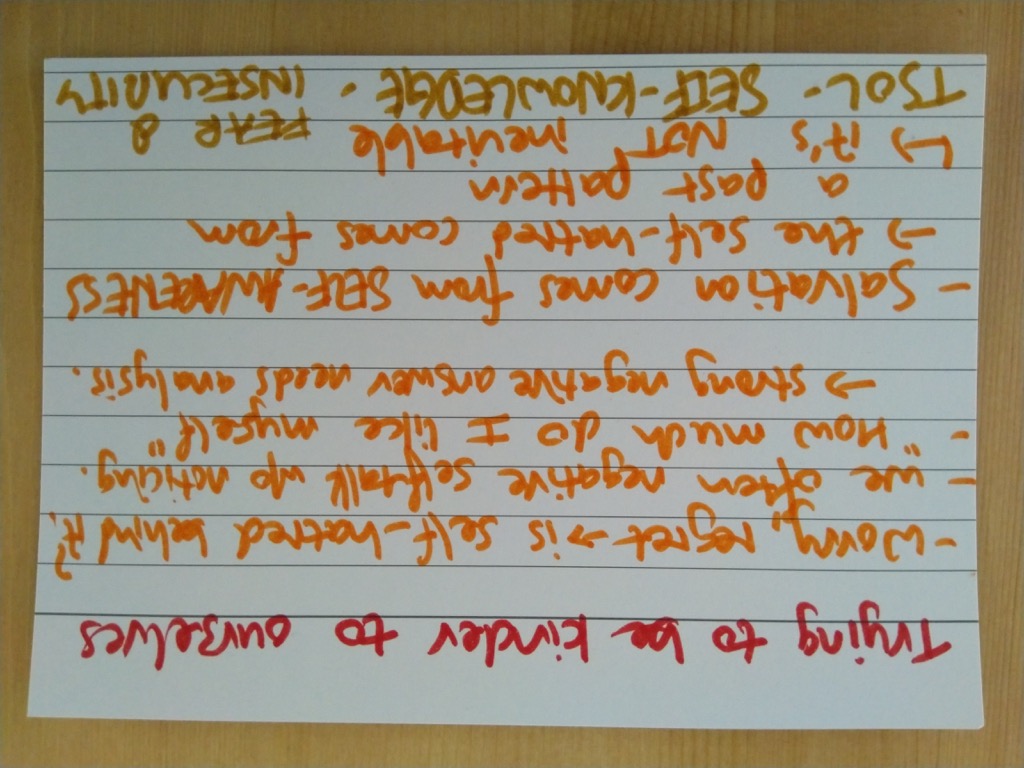 Trying to be kinder to ourselves
- Worry, regret → is self-hatred behind it?
- "we often negative selftalk w/o noticing.
- "How much do I like myself"
→ strong negative answer needs analysis.
- Salvation comes from SELF-AWARENESS
→ the self-hatred comes from
a past pattern
↳ it's NOT inevitable
FEAR &
TSOL - SELF-KNOWLEDGE · INSECURITY